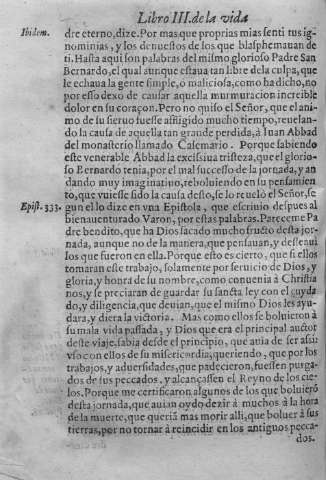 Libro III. de la vida
Ibidem. dre eterno, dize. Por mas que proprias mias senti tus ig-
nominias, y los denuestos de los que blasphemauan de
ti. Hasta aqui son palabras del mismo glorioso Padre San
Bernardo, el qual aunque estaua tan libre dela culpa, que
le echaua la gente simple, o maliciosa, como ha dicho, no
por esso dexo de causar aquella murmuracion increible
dolor en su coraçon. Pero no quiso el Señor, que el ani-
mo de su sieruo fuesse affligido mucho tiempo, reuelan-
do la causa de aquella tan grande perdida, à Iuan Abbad
del monasterio llamado Casemario. Porque sabiendo
este venerable Abbad la excissiua tristeza, que el glorio-
so Bernardo tenia, por el mal successo de la jornada, y an
dando muy imaginatiuo, reboluiendo en su pensamien
to, que vuiesse sido la causa desto, se lo reuelò el Señor, se
Epist. 333. gun el lo dize en vna Epistola, que escriuio despues al
bienauenturado Varon, por estas palabras. Pareceme Pa
dre bendito, que ha Dios sacado mucho fructo desta jor-
nada, aunque no de la manera, que pensauan, y desseaui
los que fueron en ella. Porque esto es cierto, que si ellos
tomaran este trabajo, solamente por seruicio de Dios, y
gloria, y honra de su nombre, como conuenia à Christia
nos, y se preciaran de guardar su sancta ley con el cuyda
do, y diligencia, que deuian, que el mismo Dios les ayu-
dara, y diera la victoria. Mas como ellos se boluieron à
su mala vida passada, y Dios que era el principal auctor
deste viaje, sabia desde el principio, que auia de ser assi:
vso con ellos de su misericordia, queriendo, que por los
trabajos, y aduersidades, que padecieron, fuessen purga-
dos de sus peccados, y alcançassen el Reyno de los cie-
los. Porque me certificaron algunos de los que boluierō
desta jornada, que auian oydo dezir à muchos à la hora
de la muerte, que queriā mas morir alli, que boluer à sus
tierras, por no tornar à reincidir en los antiguos pecca-
dos.